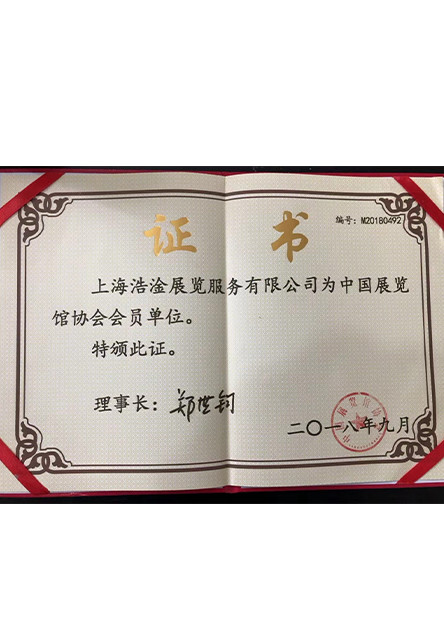 证书
编号：M20180492
上海浩淦展览服务有限公司为中国展览
馆协会会员单位。
特颁此证。
理事长：郑世钧
二〇一八年九月